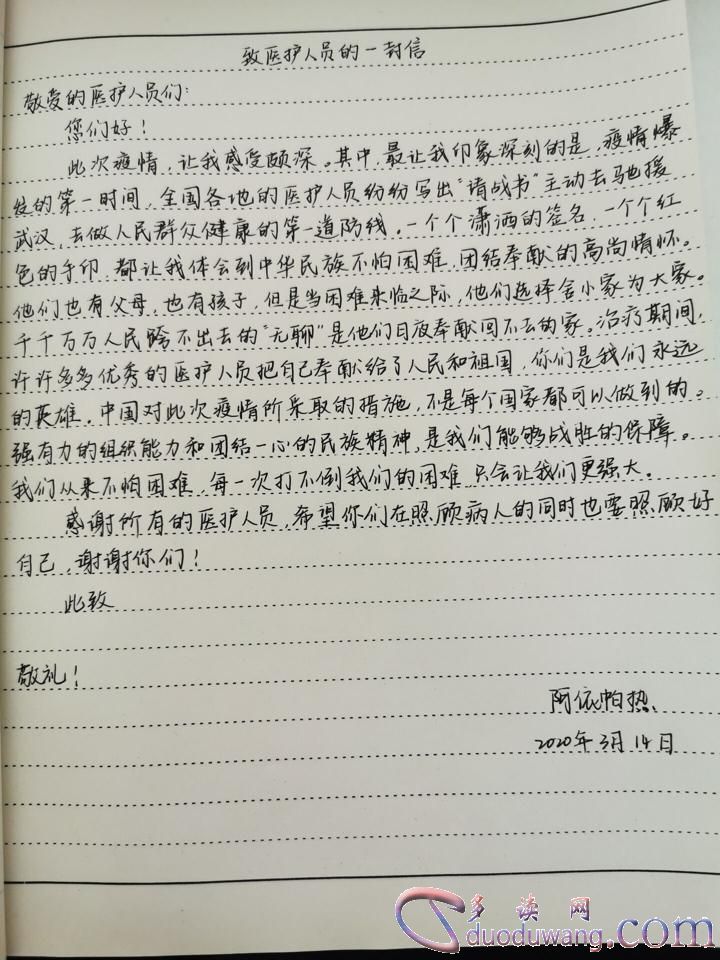 致医护人员的一封信
敬爱的医护人员们:
您们好!
此次疫情,让我感受颇深。其中,最让我印象深刻的是,疫情爆
发的第一时间,全国各地的医护人员纷纷写出“请战书”主动去驰援
武汉,去做人民群众健康的第一道防线。一个个潇洒的签名,一个个红
色的手印,都让我体会到中华民族不怕困难,团结奉献的高尚情怀。
他们也有父母,也有孩子,但是当困难来临之际,他们选择舍小家为大家。
千千万万人民跨不出去的“无聊”是他们日夜奉献回不去的家。治疗期间,
许许多多优秀的医护人员把自己奉献给了人民和祖国,你们是我们永远
的英雄。中国对此次疫情所采取的措施,不是每个国家都可以做到的。
强有力的组织能力和团结一心的民族精神,是我们能够战胜的保障。
我们从来不怕困难,每一次打不倒我们的困难,只会让我们更强大。
感谢所有的医护人员,希望你们在照顾病人的同时也要照顾好
自己,谢谢你们!
此致
敬礼!
阿依帕热
2020年3月14日
多读网
duoduwang.com